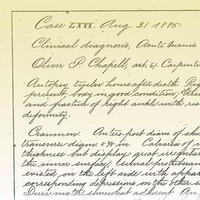 Case LXXI. Aug 21 1885
Clinical diagnosis, Acute Mania
Oliver P. Chapell, aet. 61, Carpenter
Autopsy twelve hours after death. Rigor
present, body in good condition,
and fracture of right ankle with re
deformity.
Cranium. Antero post diam of sk
transverse diam 6 in. Calvaria of u
thickness but display great irregularit
the inner surface,
existed on the left side with appar
corresponding depressions on the other s
Dura mater somewhat adherent. An